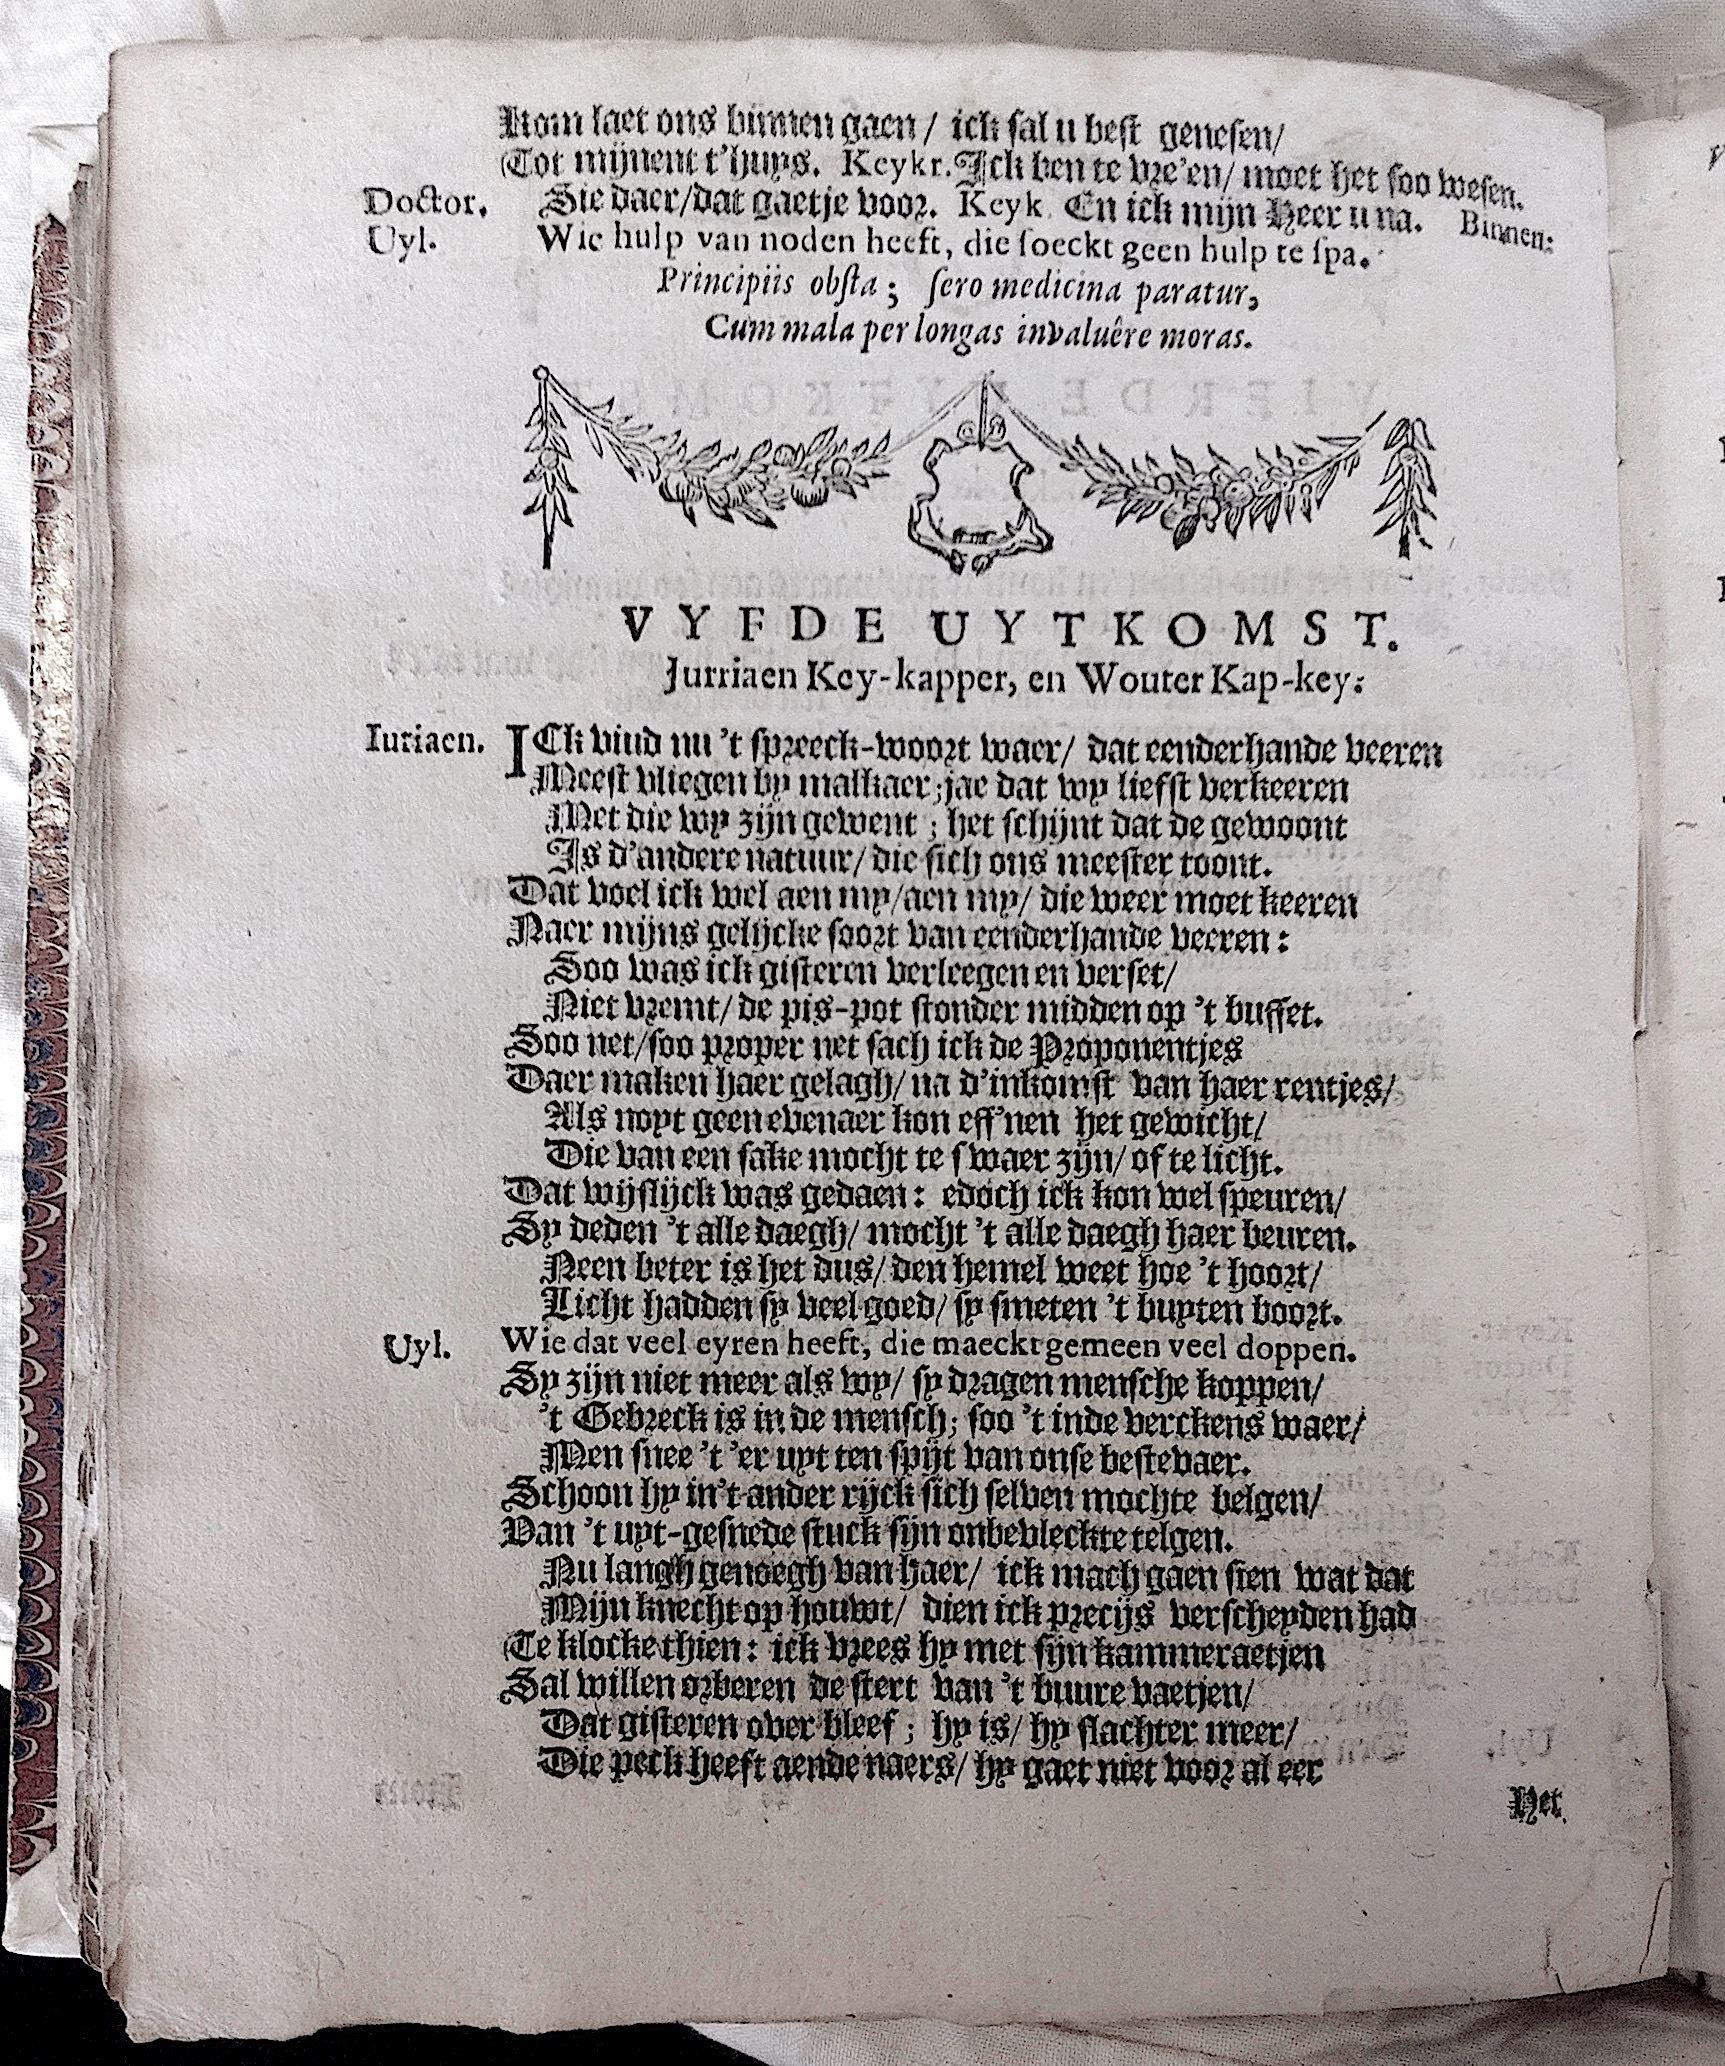 Kom laet ons binnen gaen / ick sal u best genesen/
Tot mijnent t'huys. Keykr. Ick ben te vre'en/ moet het soo wesen.
Doctor. Sie daer/dat gaetje voor. Keyk. En ick mijn Heer u na. Binnen:
Uyl. Wie hulp van noden heeft, die soeckt geen hulp te spa.
Principiis obsta; sero medicina paratur,
Cum mala per longas invaluêre moras.
VYFDE UYTKOMST.
Jurriaen Key-kapper, en Wouter Kap-key:
Iuriaen. ICk vind nu 't spreeck-woort waer/ dat eenderhande veeren
Meest vliegen by malkaer; jae dat wy liefst verkeeren
Met die wy zijn gewent; het schijnt dat de gewoont
Is d'andere natuur/ die sich ons meester toont.
Dat voel ick wel aen my/aen my/ die weer moet keeren
Naer mijns gelijcke soort van eenderhande veeren:
Soo was ick gisteren verleegen en verset/
Niet vremt/ de pis-pot stonder midden op 't buffet.
Soo net/soo proper net sach ick de Proponentjes
Daer maken haer gelagh/ na d'inkomst van haer rentjes/
Als noyt geen evenaer kon eff'nen het gewicht/
Die van een sake mocht te swaer zijn/ of te licht.
Dat wijslijck was gedaen: edoch ick kon wel speuren/
Sy deden 't alle daegh/ mocht 't alle daegh haer beuren.
Neen beter is het dus/ den hemel weet hoe 't hoort/
Licht hadden sy veel goed/ sy smeten 't buyten boort.
Uyl. Wie dat veel eyren heeft, die maeckt gemeen veel doppen.
Sy zijn niet meer als wy/ sy dragen mensche koppen/
't Gebreck is in de mensch; soo 't inde verckens waer/
Men snee 't 'er uyt ten spijt van onse bestevaer.
Schoon hy in't ander rijck sich selven mochte belgen/
Van 't uyt-gesnede stuck sijn onbevleckte telgen.
Nu langh genoegh van haer/ ick mach gaen sien wat dat
Mijn knecht op houwt/ dien ick precijs verscheyden had
Te klocke thien: ick vrees hy met sijn kammeraetjen
Sal willen orberen de stert van 't buure vaetjen/
Dat gisteren over bleef; hy is/ hy slachter meer/
Die peck heeft aende naers/ hy gaet niet voor al eer
Het